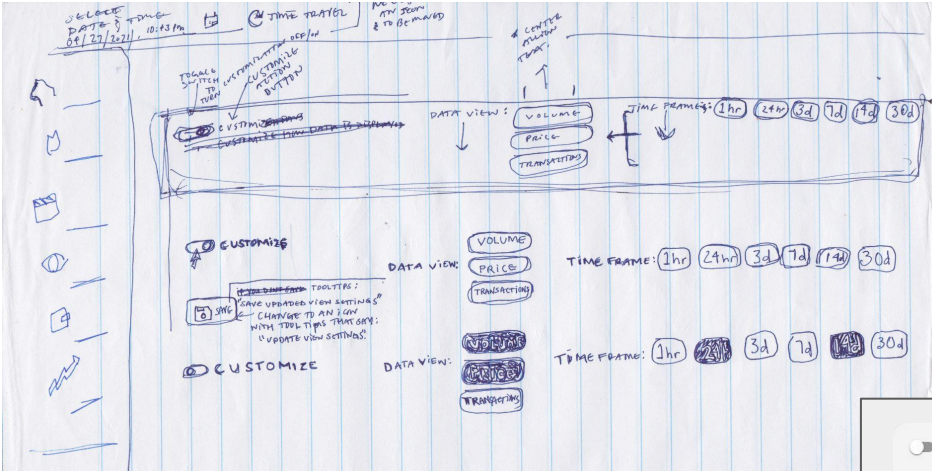 SELECT
DATE & TIME
04/27/2021, 10:43 PM
TIME TRAVEL
AN ICON
& TO BE MOVED
* CENTER
ALLIGN
TEXT.
TOGGLE
SWITCH
TO
TURN CUSTOMIZATION OFF/ON
CUSTOMIZE
ACTION
BUTTON
CUSTOMIZE
CUSTOMIZE HOW DATA IS DISPLAYED
DATA VIEW:
VOLUME
PRICE
TRANSACTIONS
TIME FRAMES: 1hr 24hr 3d 7d 14d 30d
CUSTOMIZE
DATA VIEW:
VOLUME
PRICE
TRANSACTIONS
TIME FRAME: 1hr 24hr 3d 7d 14d 30d
SAVE
TOOLTIPS:
"SAVE UPDATED VIEW SETTINGS"
CHANGE TO AN ICON
WITH TOOL TIPS THAT SAY:
"UPDATE VIEW SETTINGS".
CUSTOMIZE
DATA VIEW:
VOLUME
PRICE
TRANSACTIONS
TIME FRAME: 1hr 3d 7d 14d 30d